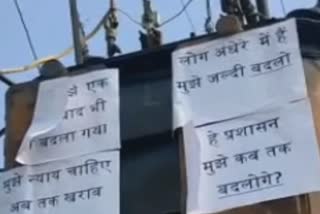 एक
बाद भी
बदला गया
मुझे न्याय चाहिए
अब तक खराब
लोग अंधेरे में हैं
मुझे जल्दी बदलो
हे प्रशासन
मुझे कब तक
बदलोगे?